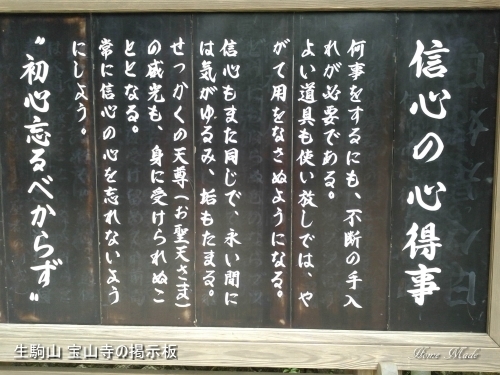 信心の心得事
何事をするにも、不断の手入
れが必要である。
よい道具も使い放しでは、や
がて用をなさぬようになる。
信心もまた同じで、永い間に
は気がゆるみ、垢もたまる。
せっかくの天尊（お聖天さま）
の威光も、身に受けられぬこ
ととなる。
常に信心の心を忘れないよう
にしよう。
〝初心忘るべからず〟
生駒山 宝山寺の掲示板
Home Made